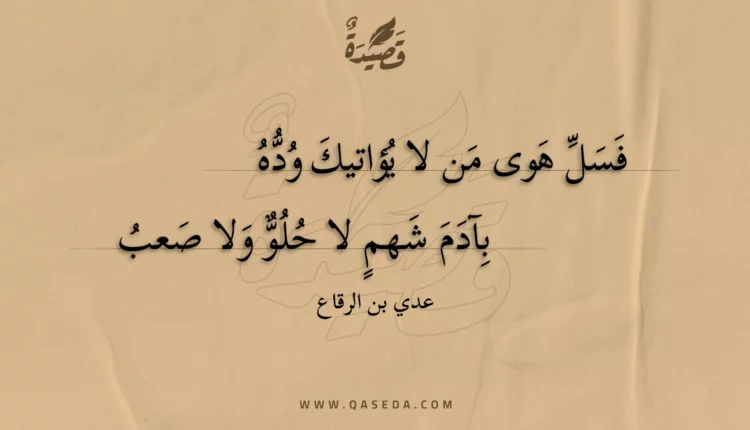 قَصِيْدَةٌ
فَسَلِّ هَوى مَن لا يُؤاتيكَ وُدُّهُ
بِآدَمَ شَهمٍ لا خُلُوٌّ وَلا صَعبُ
عدي بن الرقاع
WWW.QASEDA.COM